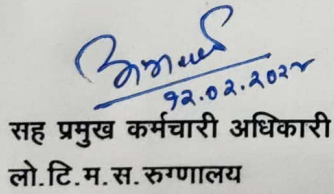 १२.०२.२०२५
सह प्रमुख कर्मचारी अधिकारी
लो.टि.म.स.रुग्णालय